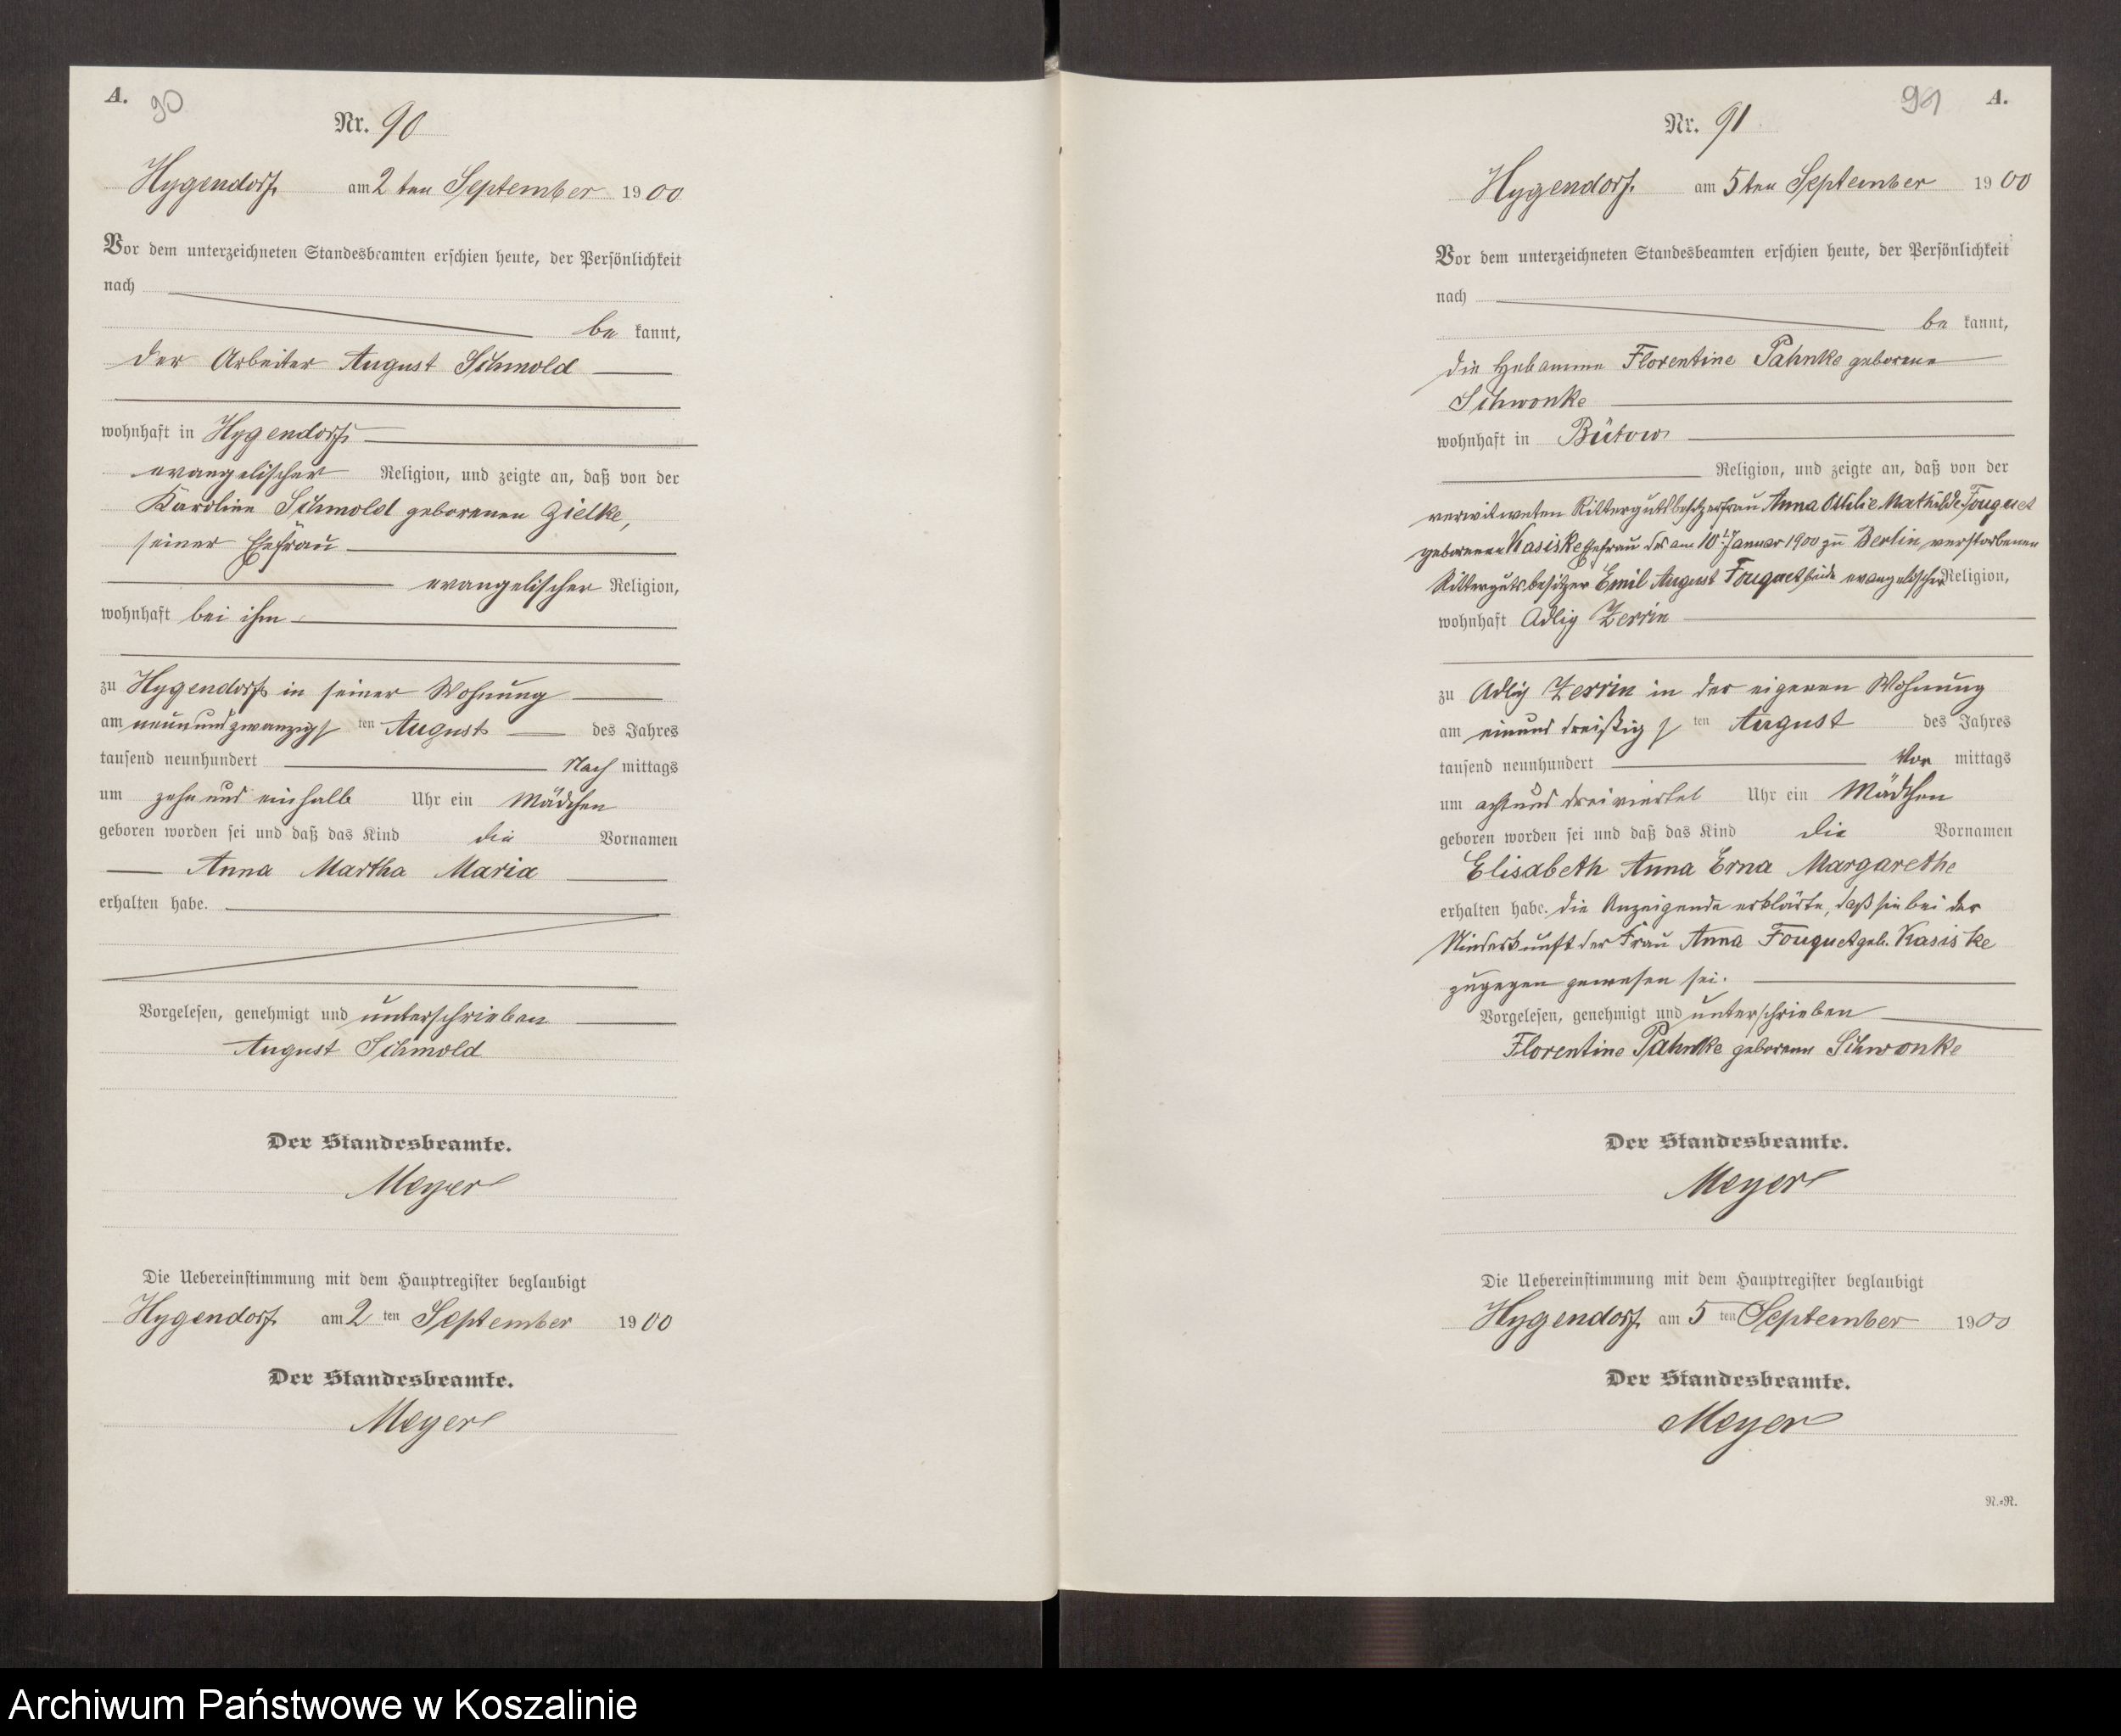 A.
90
Nr. 90
Hygendorf am 2 ten September 1900
Vor dem unterzeichneten Standesbeamten erschien heute, der Persönlichkeit
nach
be kannt,
der Arbeiter August Schmold
wohnhaft in Hygendorf
evangelischer Religion, und zeigte an, daß von der
Karoline Schmold geborenen Zielke,
seiner Ehefrau
evangelischer Religion,
wohnhaft bei ihm
zu Hygendorf in seiner Wohnung
am neunundzwanzigsten August des Jahres
tausend neunhundert Nach mittags
um zehn und einhalb Uhr ein Mädchen
geboren worden sei und daß das Kind die Vornamen
Anna Martha Maria
erhalten habe.
Vorgelesen, genehmigt und unterschrieben
August Schmold
Der Standesbeamte.
Meyer
Die Uebereinstimmung mit dem Hauptregister beglaubigt
Hygendorf am 2 ten September 1900
Der Standesbeamte.
Meyer
91 A.
Nr. 91
Hygendorf am 5 ten September 1900
Vor dem unterzeichneten Standesbeamten erschien heute, der Persönlichkeit
nach
be kannt,
die Hebamme Florentine Pahnke geborene
Schwonke
wohnhaft in Bütow
Religion, und zeigte an, daß von der
verwitweten Rittergutsbesitzerfrau Anna Ottilie Mathilde Fouquet
geborenen Kasiske Ehefrau des am 10ten Januar 1900 zu Berlin verstorbenen
Rittergutsbesitzer Emil August Fouquet beide evangelischer Religion,
wohnhaft Adlig Zerrin
zu Adlig Zerrin in der eigenen Wohnung
am einunddreißigsten August des Jahres
tausend neunhundert Vor mittags
um acht und dreiviertel Uhr ein Mädchen
geboren worden sei und daß das Kind die Vornamen
Elisabeth Anna Erna Margarethe
erhalten habe. Die Anzeigende erklärte, daß sie bei der
Niederkunft der Frau Anna Fouquet geb. Kasiske
zugegen gewesen sei.
Vorgelesen, genehmigt und unterschrieben
Florentine Pahnke geborene Schwonke
Der Standesbeamte.
Meyer
Die Uebereinstimmung mit dem Hauptregister beglaubigt
Hygendorf am 5 ten September 1900
Der Standesbeamte.
Meyer
N.=N.
Archiwum Państwowe w Koszalinie